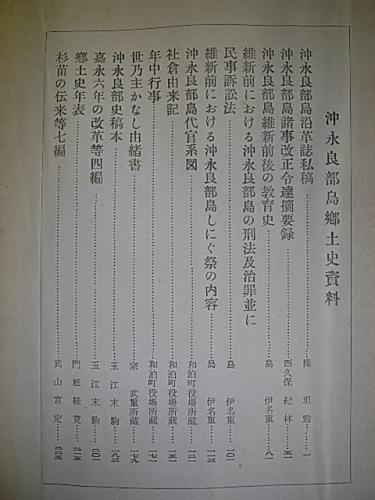 沖永良部島郷土史資料
沖永良部島沿革誌私稿……操 坦勁……一
沖永良部島諸事改正令達摘要録……西久保 紀林……五一
沖永良部島維新前後の教育史……島 伊名重……八一
維新前における沖永良部島の刑法及治罪並に
民事訴訟法……島 伊名重……一〇一
維新前における沖永良部島しにぐ祭の内容……島 伊名重……一二三
沖永良部島代官系図……和泊町役場所蔵
社倉由来記……和泊町役場所蔵
年中行事……和泊町役場所蔵……一七一
世乃主かなし由緒書……宗 武重所蔵……一七九
沖永良部史稿本……玉江末駒……一八三
嘉永六年の改革等四編……玉江末駒……二〇一
郷土史年表……門松経寛……二二五
杉苗の伝来等七編……武山宮定……二三五